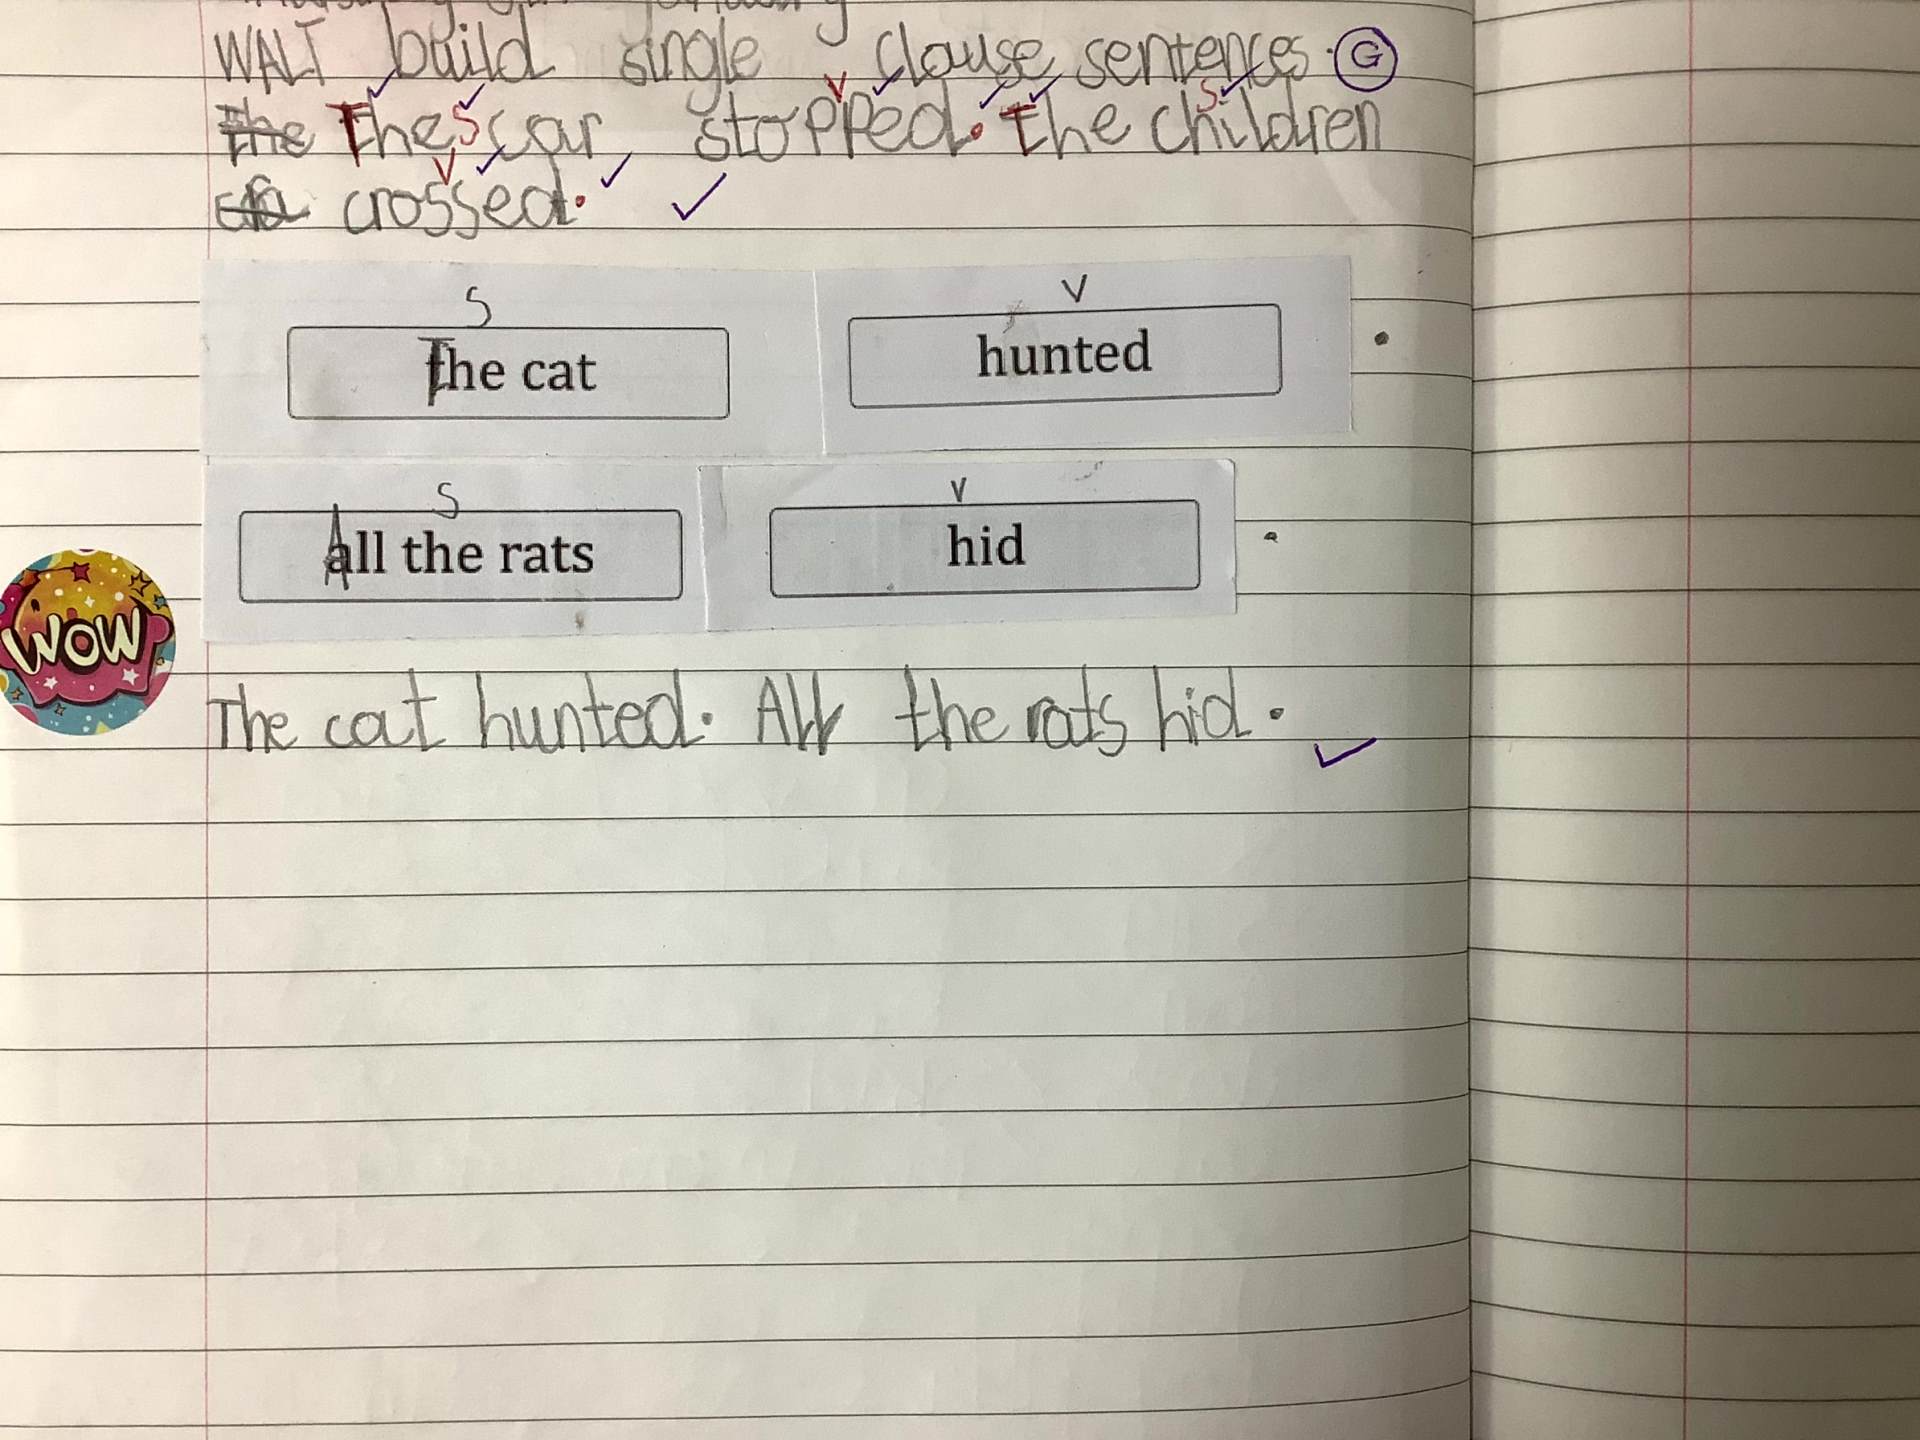 WALT build single clause sentences. G
the The S car V stopped. The S children
V crossed.
S V
The cat hunted .
S V
All the rats hid .
WOW
The cat hunted. All the rats hid.